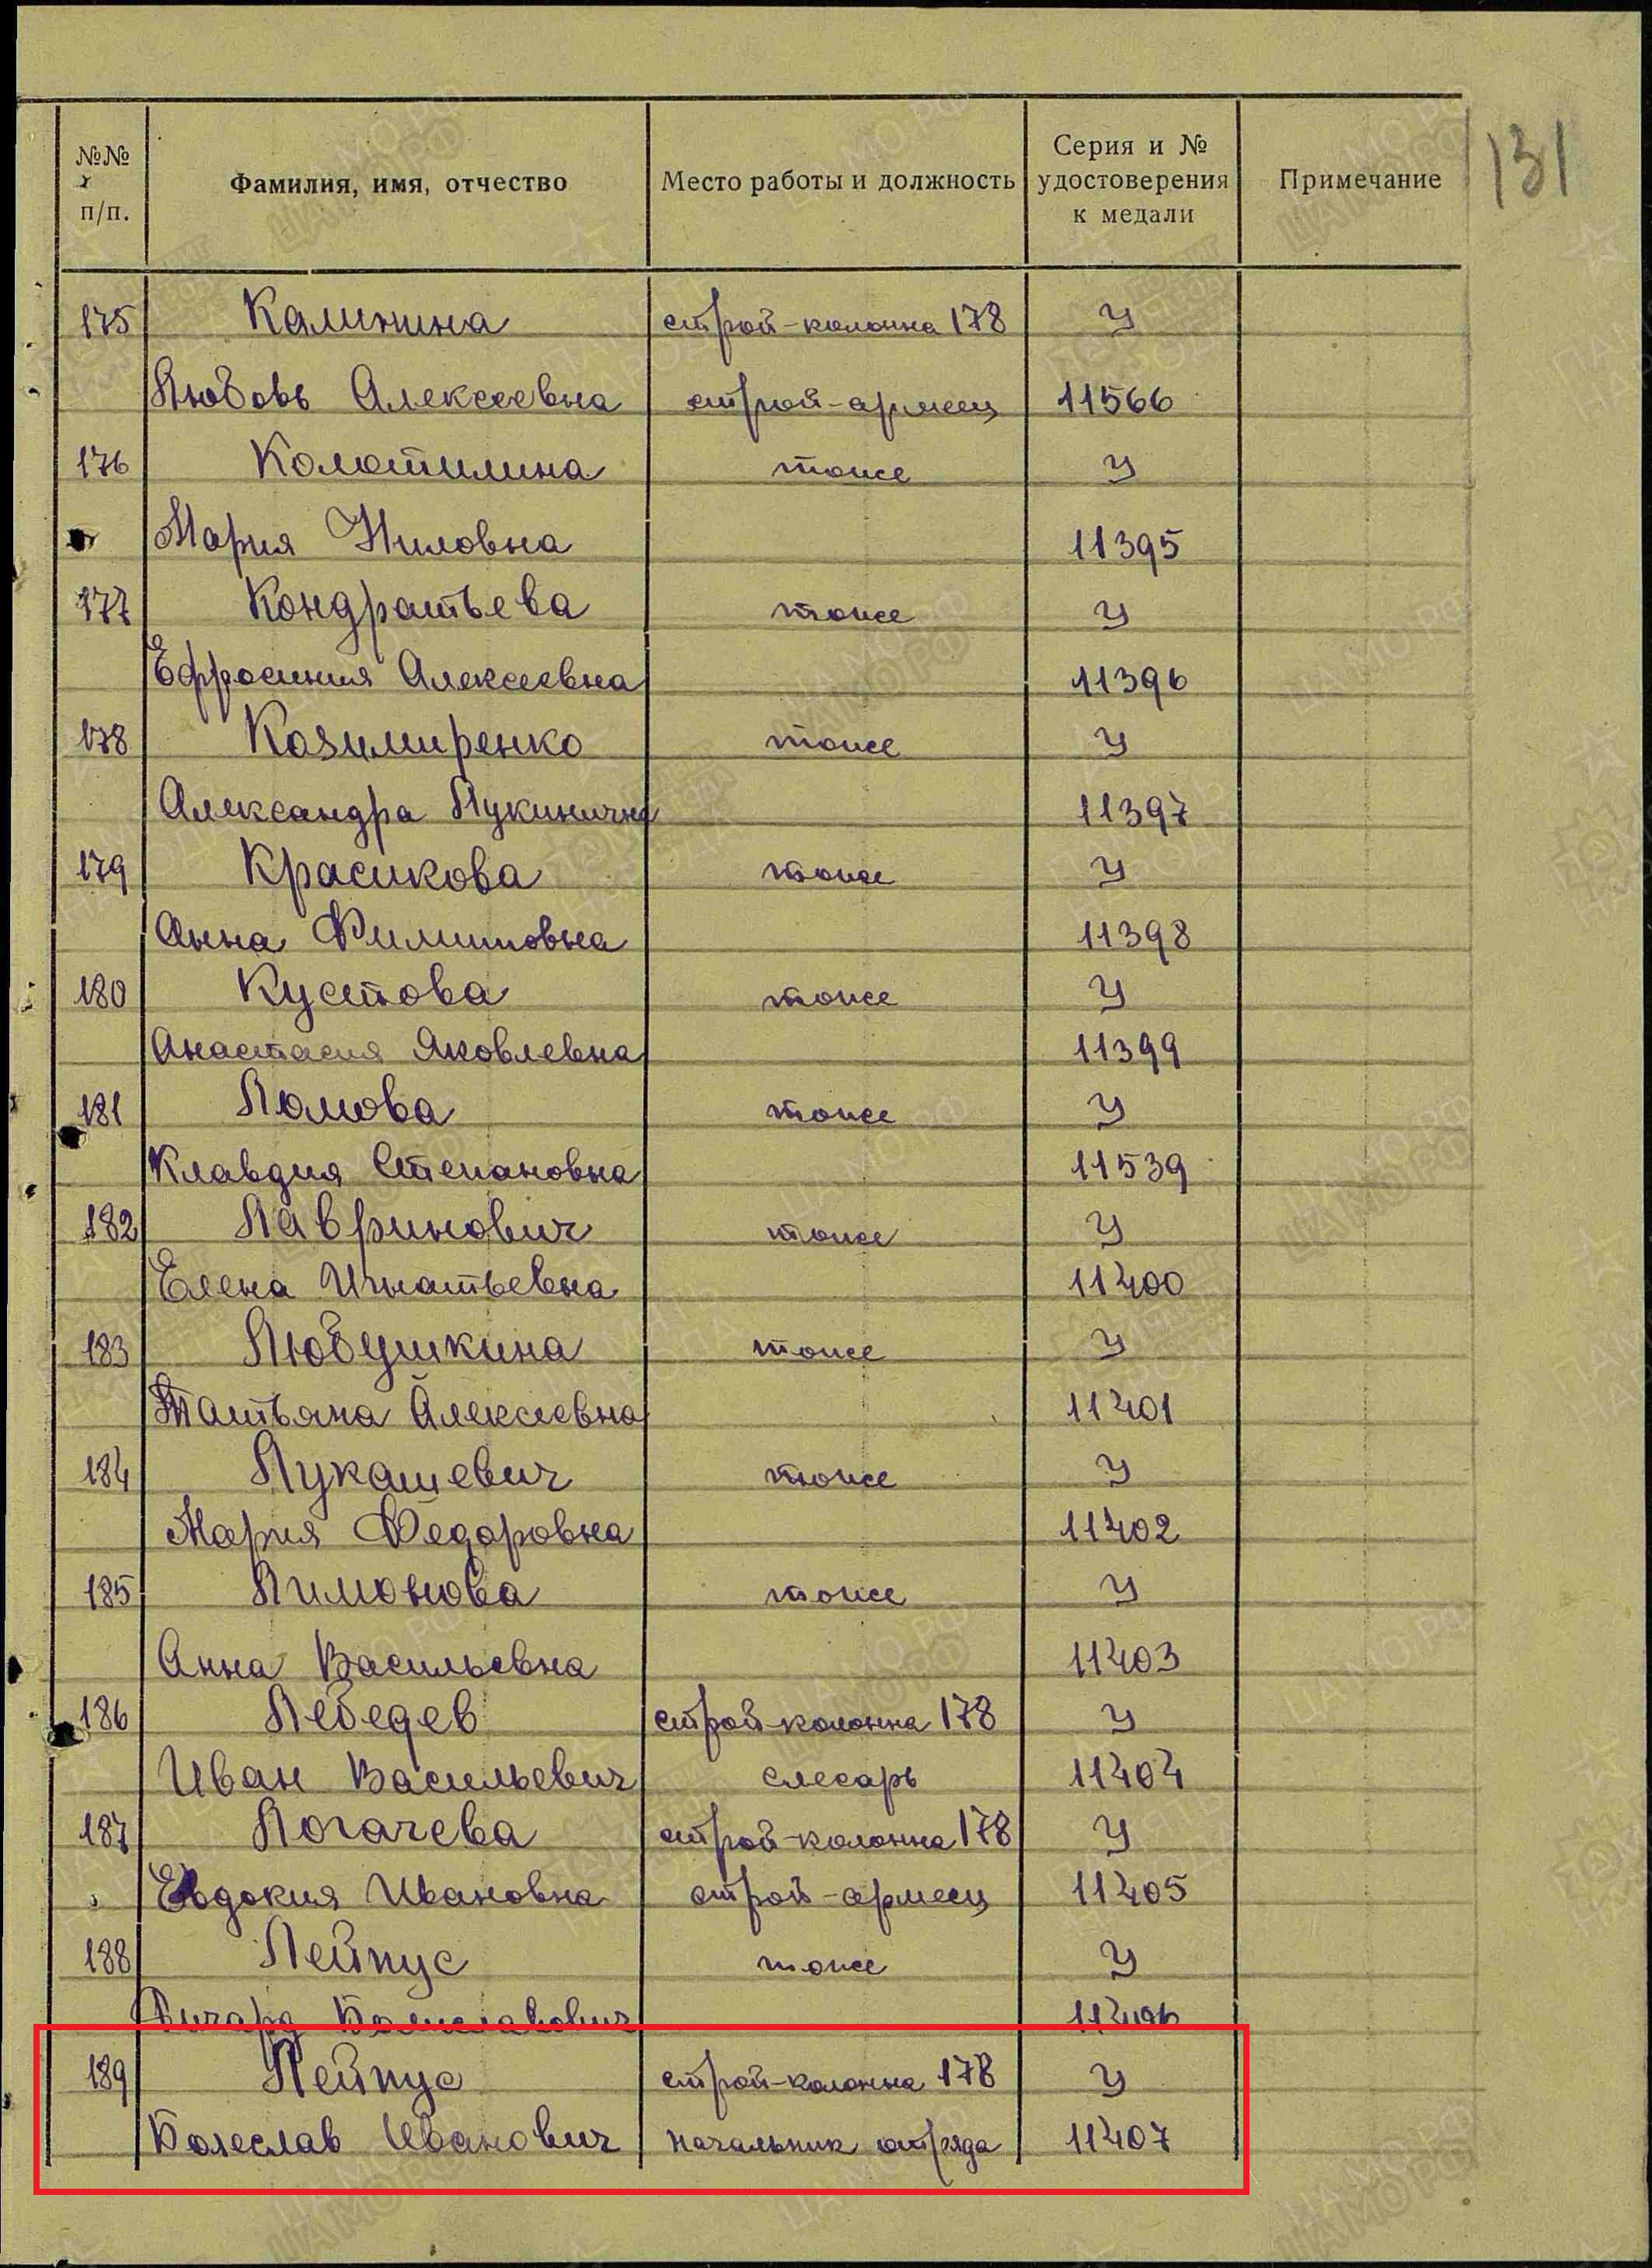 131
№№ п/п. Фамилия, имя, отчество Место работы и должность Серия и № удостоверения к медали Примечание
175 Калинина строй-колонна 178 У
Любовь Алексеевна строй-армеец 11566
176 Колотилина тоже У
Мария Ниловна 11395
177 Кондратьева тоже У
Ефросиния Алексеевна 11396
178 Козимиренко тоже У
Александра Лукинична 11397
179 Красикова тоже У
Анна Филипповна 11398
180 Кустова тоже У
Анастасия Яковлевна 11399
181 Ломова тоже У
Клавдия Степановна 11539
182 Лавринович тоже У
Елена Игнатьевна 11400
183 Любушкина тоже У
Татьяна Алексеевна 11401
184 Лукашевич тоже У
Мария Федоровна 11402
185 Лимонова тоже У
Анна Васильевна 11403
186 Лебедев строй-колонна 178 У
Иван Васильевич слесарь 11404
187 Логачева строй-колонна 178 У
Евдокия Ивановна строй-армеец 11405
188 Лейпус тоже У
Ричард Болиславович 11406
189 Лейпус строй-колонна 178 У
Болеслав Иванович начальник отряда 11407